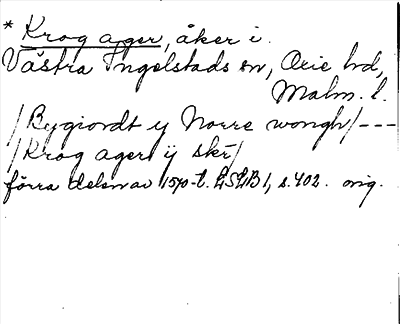 * Krog ager, åker i
Västra Ingelstads sn, Oxie hd,
Malm. l.
/Bygiordt y Norre wongh/---
/Krog ager ÿ skē/
förra delen av 1570-t. LSLB 1, s. 402. orig.